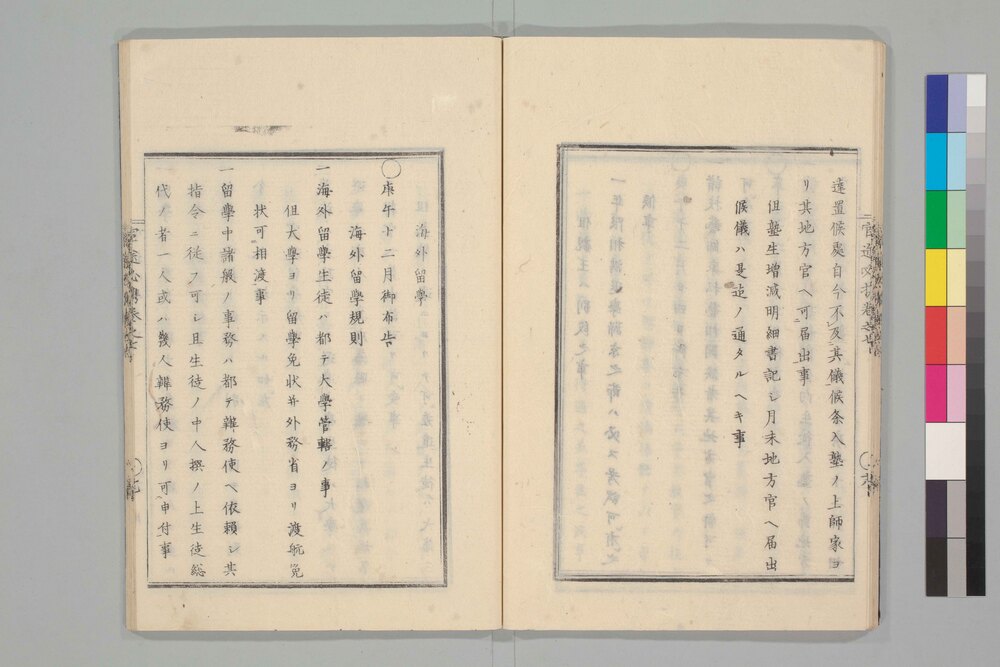 達置候處自今不及其儀候条入塾ノ上師家ヨ
リ其地方官ヘ可届出事
但塾生増減明細書記シ月末地方官ヘ届出
候儀ハ是迄ノ通タルヘキ事
海外留學
○庚午十二月御布告
海外留學規則
一海外留學生徒ハ都テ大學管轄ノ事
但大學ヨリ留學免状并外務省ヨリ渡航免
状可相渡事
一留學中諸般ノ事務ハ都テ辨務使ヘ依頼シ其
指令ニ從フ可シ且生徒ノ中人撰ノ上生徒総
代ノ者一人或ハ幾人辨務使ヨリ可申付事